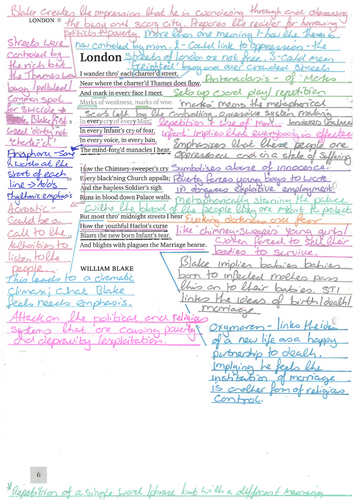 Blake creates the impression that he is wandering through + observing
the busy and seedy city. Prepares the reader for horrifying
sights + poverty.
LONDON
More than one meaning + how the Thames is
now controlled by man. 1 - Could link to oppression - the
Streets of London are not free. 2 - Could mean
busy and are crowded streets
Streets were
controlled by
the rich but
the Thames was
busy / polluted /
common spot
for suicide.
Blake first
used 'dirty' not
'charter'd'
London
I wander thro' each charter'd street,
Near where the charter'd Thames does flow,
And mark in every face I meet
Marks of weakness, marks of woe.
Antanaclasis - of 'Marks'
Sets up word play / repetition
'marks' means the metaphorical
Scars left by the controlling oppressive system making
In every cry of every Man,
In every Infant's cry of fear,
In every voice, in every ban,
The mind-forg'd manacles I hear.
Repetition + use of 'man'
'infant' implies that everybody is affected
Emphasises that these people are
oppressed and in a state of suffering
Anaphora - Same
words at the
start of each
line → Adds
rhythmic emphasis
How the Chimney-sweeper's cry
Every black'ning Church appalls;
And the hapless Soldier's sigh
Runs in blood down Palace walls.
Symbolises abuse of innocence.
Poverty forces young boys to work
in dangerous exploitive 'employment'
metaphorically staining the palace
with the blood of the people they are meant to protect
Acrostic -
Could be a
Call to the
authorities to
listen to the
people.
But most thro' midnight streets I hear
How the youthful Harlot's curse
Blasts the new born Infant's tear,
And blights with plagues the Marriage hearse.
like chimney-sweeps young girls /
women forced to sell their
bodies to survive.
WILLIAM BLAKE
This leads to a climatic
climax; what Blake
feels needs emphasis.
Blake implies babies
born to infected mothers pass
this on to their babies. STI
links the ideas of birth / death /
marriage
Attack on the political and religious
systems that are causing poverty
and depravity / exploitation.
Oxymoron - links the idea
of a new life as a happy
partnership to death.
Implying he feels the
institution of marriage
is another form of religious
control.
6
* Repetition of a single word / phrase but with a different meaning